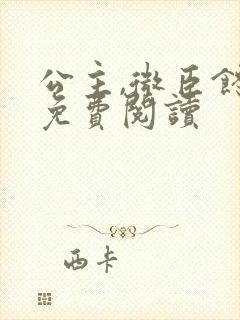 公主,微臣
免費閱讀
西卡